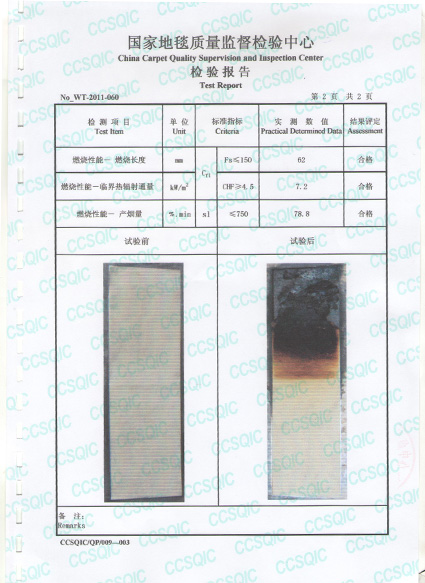 国家地毯质量监督检验中心
China Carpet Quality Supervision and Inspection Center
检验报告
Test Report
No WT-2011-060 第 2 页 共 2 页
检 测 项 目 单 位 标准指标 实 测 数 值 结果评定
Test Item Unit Criteria Practical Determined Data Assessment
燃烧性能- 燃烧长度 mm Fs≤150 62 合格
燃烧性能-临界热辐射通量 kW/m² Cf1 CHF≥4.5 7.2 合格
燃烧性能- 产烟量 %.min s1 ≤750 78.8 合格
试验前 试验后
备 注:
Remarks
CCSQIC/QP/009—003
CCSQIC